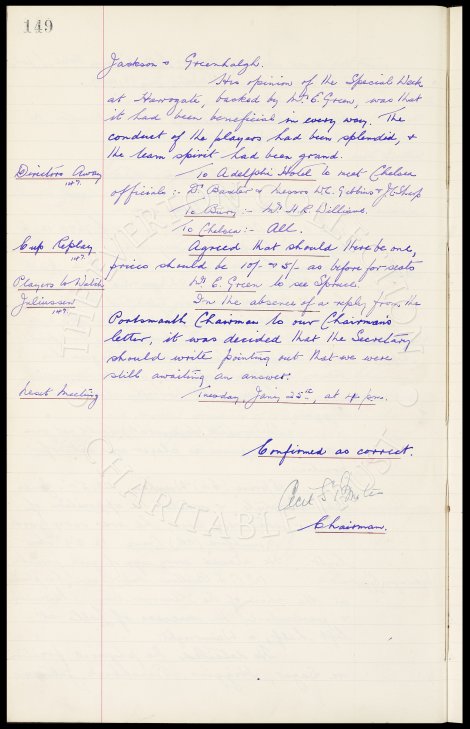 149
Jackson & Greenhalgh.
His opinion of the Special Week
at Harrogate, backed by Mr. E. Green, was that
it had been beneficial in every way. The
conduct of the players had been splendid, &
the team spirit had been grand.
Directors Away
149.
To Adelphi Hotel to meet Chelsea
officials :- Dr. Baxter & Messrs W.C. Gibbins & J.C. Sharp
To Bury :- Mr. H.R. Williams.
To Chelsea :- All.
Cup Replay
149.
Agreed that should there be one,
prices should be 10/- & 5/- as before for seats
Players to Watch
Mr. E. Green to see Spruce.
Juliussen
149.
In the absence of a reply from the
Portsmouth Chairman to our Chairman's
letter, it was decided that the Secretary
should write pointing out that we were
still awaiting an answer.
Next Meeting
Tuesday, Jany 25th, at 4 p.m.
Confirmed as correct.
Cecil S.
Chairman.
THE EVERTON
CHARITABLE TRUST